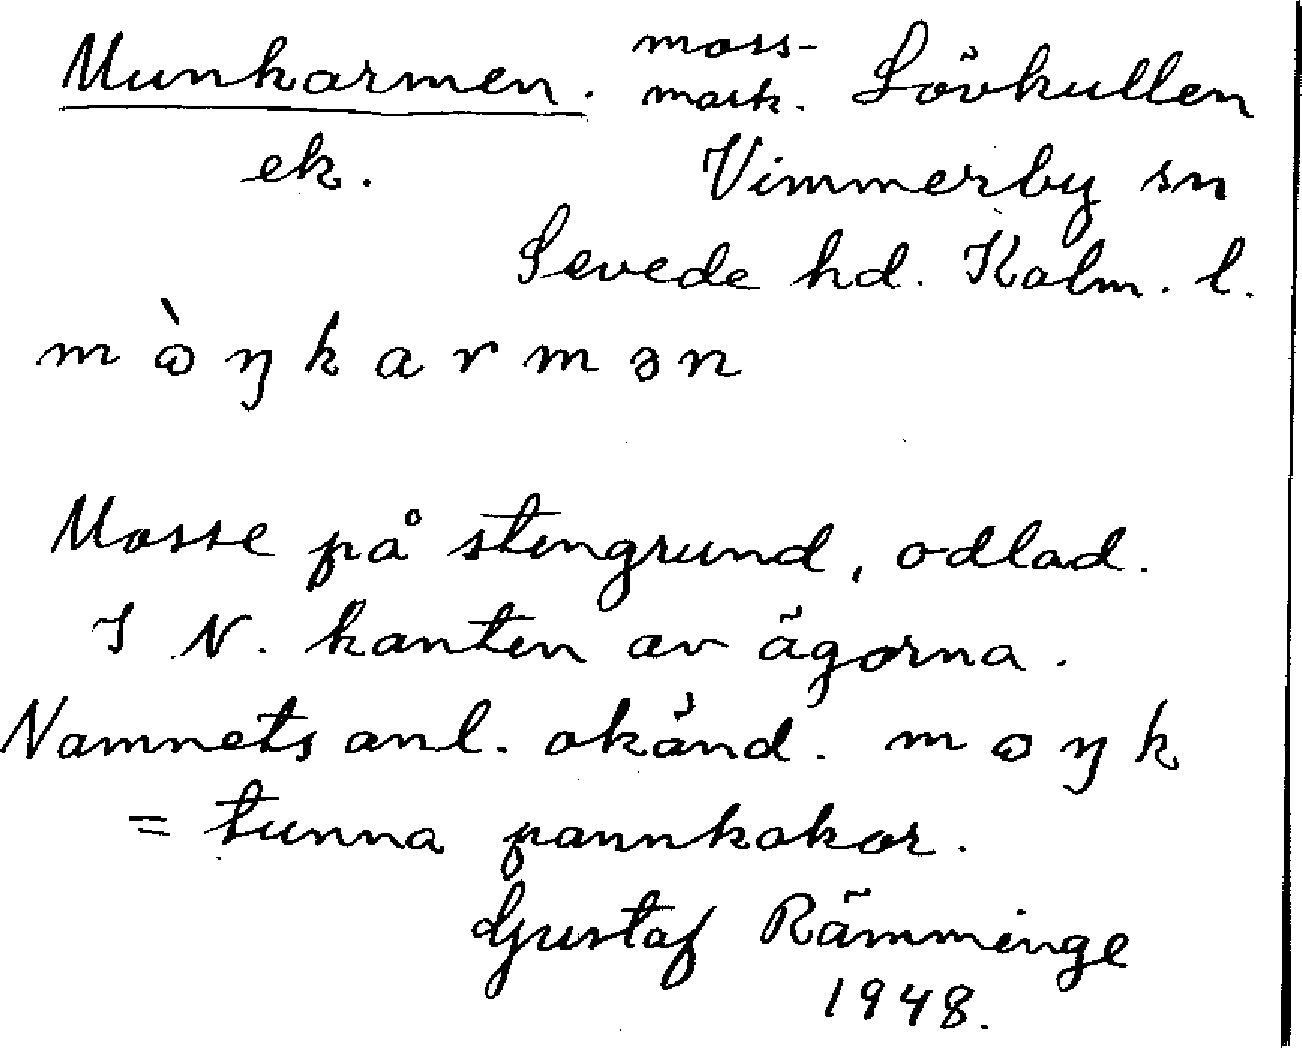 Munkarmen. moss-
mark. Lövkullen
ek. Vimmerby sn
Sevede hd. Kalm. l.
mὼŋkarmən
Mosse på stengrund, odlad.
I N. kanten av ägorna.
Namnets anl. okänd. mωŋk
= tunna pannkakor.
Gustaf Rämminge
1948.